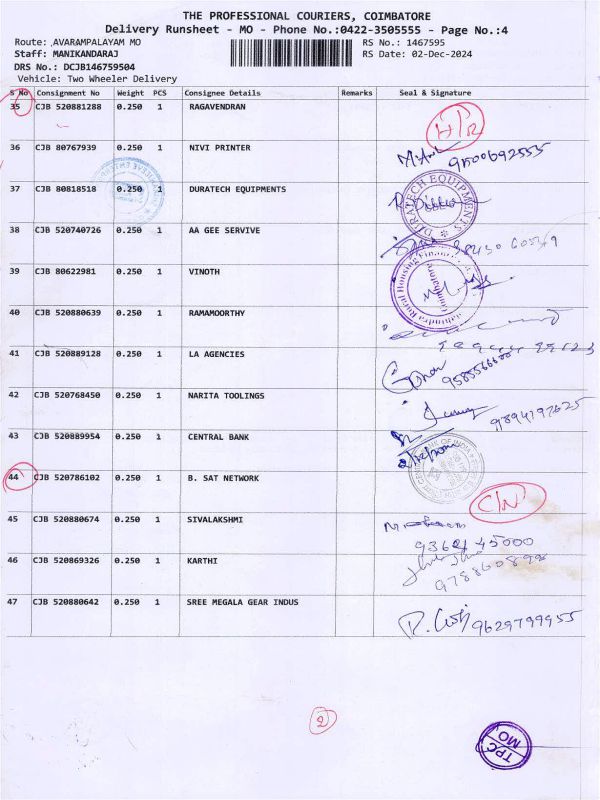 THE PROFESSIONAL COURIERS, COIMBATORE
Delivery Runsheet - MO - Phone No.:0422-3505555 - Page No.:4
Route: ,AVARAMPALAYAM MO
RS No.: 1467595
Staff: MANIKANDARAJ
RS Date: 02-Dec-2024
DRS No.: DCJB146759504
Vehicle: Two Wheeler Delivery
S No Consignment No Weight PCS Consignee Details Remarks Seal & Signature
35 CJB 520881288 0.250 1 RAGAVENDRAN
36 CJB 80767939 0.250 1 NIVI PRINTER
37 CJB 80818518 0.250 1 DURATECH EQUIPMENTS
DURATECH EQUIPMENTS
38 CJB 520740726 0.250 1 AA GEE SERVIVE
39 CJB 80622981 0.250 1 VINOTH
Coimbatore
40 CJB 520880639 0.250 1 RAMAMOORTHY
41 CJB 520889128 0.250 1 LA AGENCIES
42 CJB 520768450 0.250 1 NARITA TOOLINGS
9894197625
43 CJB 520889954 0.250 1 CENTRAL BANK
44 CJB 520786102 0.250 1 B. SAT NETWORK
45 CJB 520880674 0.250 1 SIVALAKSHMI
46 CJB 520869326 0.250 1 KARTHI
47 CJB 520880642 0.250 1 SREE MEGALA GEAR INDUS
9629799955
2
TPC
MO